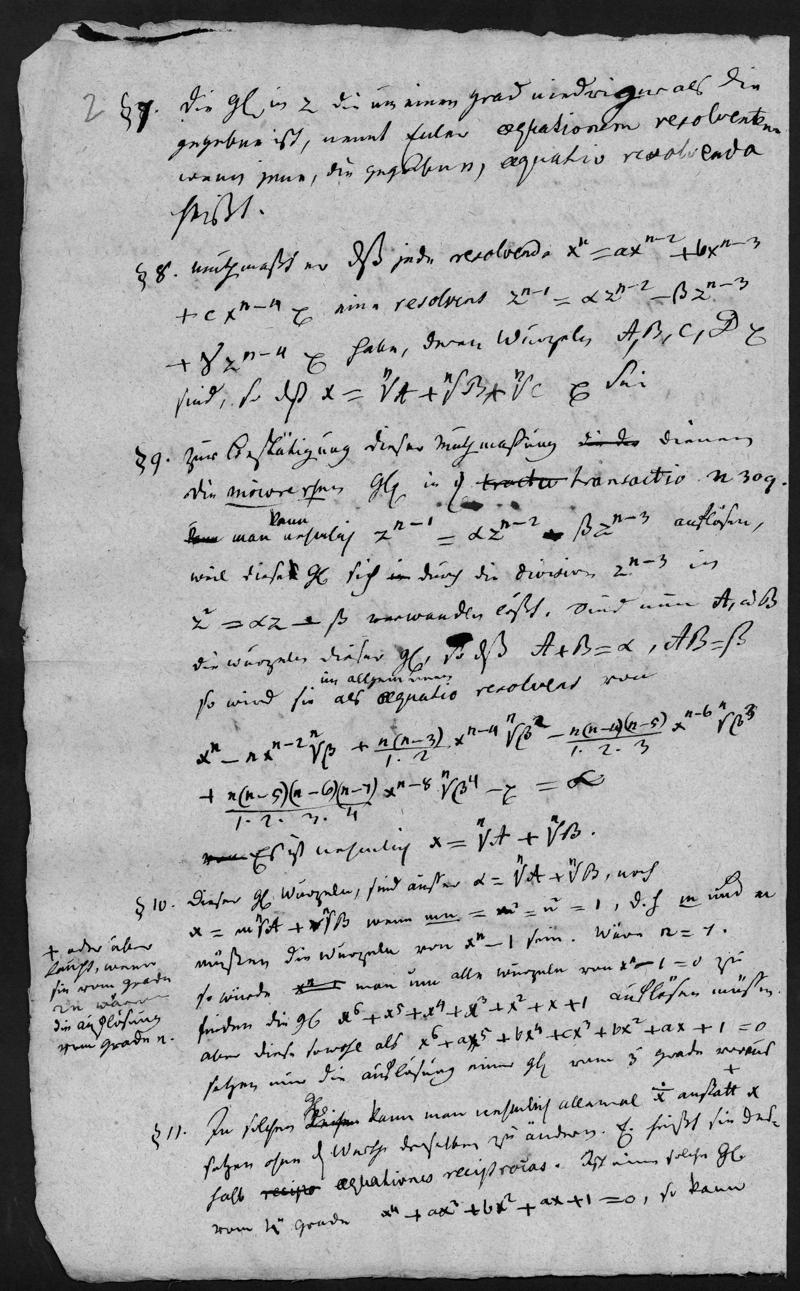 2 § 7. Die Gl. in z die um einen grad niedriger als die
gegebene ist, nennt Euler æquationem resolventem
wenn jene, die gegebene, æquatio resolvenda
heißt.
§ 8. muthmaßt er dß jede resolvenda xⁿ = axⁿ⁻² + bxⁿ⁻³
+ c xⁿ⁻⁴ eine resolvens zⁿ⁻¹ = αzⁿ⁻² − βzⁿ⁻³
+ γzⁿ⁻⁴ habe, deren Wurzeln A, B, C, D
sind, so dß x = ⁿ√A + ⁿ√B + ⁿ√C sei
§ 9. Zur Bestätigung dieser Muthmaßung dienen
die Gl. in transactio n 309.
kann
man nehmlich zⁿ⁻¹ = αzⁿ⁻² − βzⁿ⁻³ auflösen,
weil diese Gl. sich durch die division zⁿ⁻³ in
z² = αz − β verwandeln läßt. Sind nun A, u B
die wurzeln dieser Gl., so dß A + B = α, AB = β
im allgemeinen
so wird sie als æquatio resolvens von
xⁿ − nxⁿ⁻² ⁿ√β + n(n−3)/1·2 xⁿ⁻⁴ ⁿ√β² − n(n−4)(n−5)/1·2·3 xⁿ⁻⁶ ⁿ√β³
+ n(n−5)(n−6)(n−7)/1·2·3·4 xⁿ⁻⁸ ⁿ√β⁴ − = α
Es ist nehmlich x = ⁿ√A + ⁿ√B.
§ 10. Dieser Gl. Wurzeln, sind außer x = ⁿ√A + ⁿ√B, noch
x = m ⁿ√A + n ⁿ√B wenn mn = mⁿ = nⁿ = 1, d.h. m und n
müßten die wurzeln von xⁿ − 1 sein. Wäre n = 7.
so würde man um alle wurzeln von x⁷ − 1 = 0 zu
finden die Gl. x⁶ + x⁵ + x⁴ + x³ + x² + x + 1 auflösen müssen.
aber diese sowohl als x⁶ + ax⁵ + bx⁴ + cx³ + bx² + ax + 1 = 0
setzen nur die auflösung einer Gl. vom 3 grade voraus +
+ oder über
haupt, wenn
sie vom grade
2n wären
die auflösung
vom grade n.
§ 11. In solchen kann man nehmlich allemal 1/x anstatt x
setzen ohne d Werth derselben zu ändern. heißt sie des-
halb æquationes reciprocas. Ist eine solche Gl.
vom 4ⁿ grade x⁴ + ax³ + bx² + ax + 1 = 0, so kann